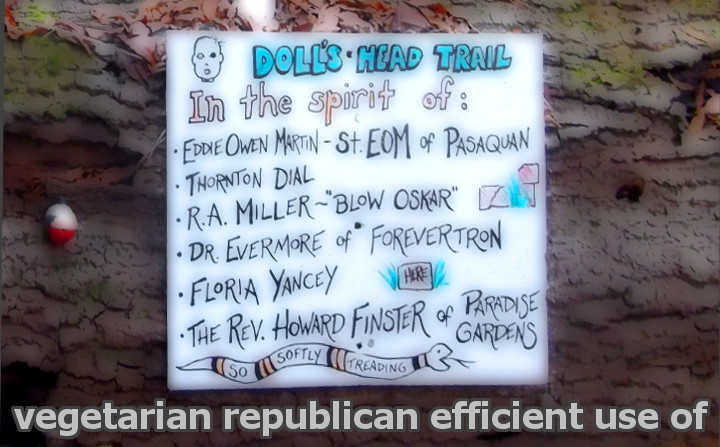 DOLL'S·HEAD TRAIL
In the spirit of:
·EDDIE OWEN MARTIN - ST. EOM of PASAQUAN
·THORNTON DIAL
·R.A. MILLER ~ "BLOW OSKAR"
·DR. EVERMORE of FOREVERTRON
·FLORIA YANCEY
HERE
·THE REV. HOWARD FINSTER of PARADISE GARDENS
SO SOFTLY TREADING
vegetarian republican efficient use of